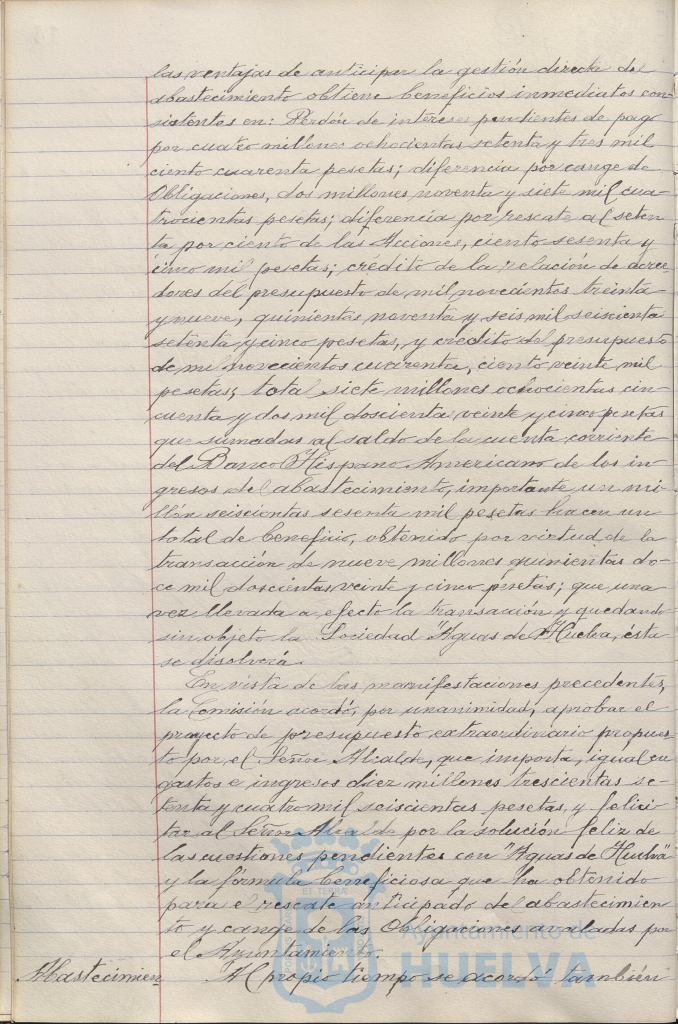 las ventajas de anticipar la gestión directa del
abastecimiento obtiene beneficios inmediatos con-
sistentes en: Perdón de intereses pendientes de pago
por cuatro millones ochocientas setenta y tres mil
ciento cuarenta pesetas; diferencia por cange de
Obligaciones, dos millones noventa y siete mil cua-
trocientas pesetas; diferencia por rescate al seten-
ta por ciento de las Acciones, ciento sesenta y
cinco mil pesetas; crédito de la relación de acree-
dores del presupuesto de mil novecientos treinta
y nueve, quinientas noventa y seis mil seiscientas
setenta y cinco pesetas, y crédito del presupuesto
de mil novecientos cuarenta, ciento veinte mil
pesetas; total siete millones ochocientas cin-
cuenta y dos mil doscientas veinte y cinco pesetas
que sumadas al saldo de la cuenta corriente
del Banco Hispano Americano de los in-
gresos del abastecimiento, importante un mi-
llón seiscientas sesenta mil pesetas hacen un
total de beneficio, obtenido por virtud de la
transacción de nueve millones quinientas do-
ce mil doscientas veinte y cinco pesetas; que una
vez llevada a efecto la transacción y quedando
sin objeto la Sociedad "Aguas de Huelva, ésta
se disolverá.
En vista de las manifestaciones precedentes,
la Comisión acordó, por unanimidad, aprobar el
proyecto de presupuesto extraordinario propues-
to por el Señor Alcalde, que importa, igual en
gastos e ingresos diez millones trescientas se-
tenta y cuatro mil seiscientas pesetas, y felici-
tar al Señor Alcalde por la solución feliz de
las cuestiones pendientes con "Aguas de Huelva"
y la fórmula beneficiosa que ha obtenido
para el rescate anticipado del abastecimien-
to y cange de las Obligaciones avaladas por
el Ayuntamiento.
Abastecimien Al propio tiempo se acordó también
Ayuntamiento de
HUELVA